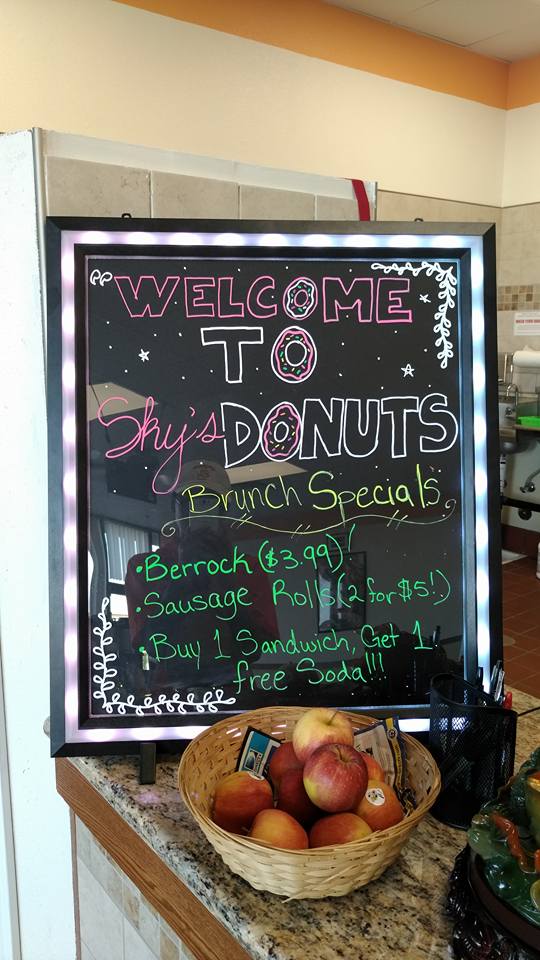 WELCOME
TO
Sky's DONUTS
Brunch Specials
• Berrock ($3.99)!
• Sausage Rolls (2 for $5!)
• Buy 1 Sandwich, Get 1
free Soda!!!